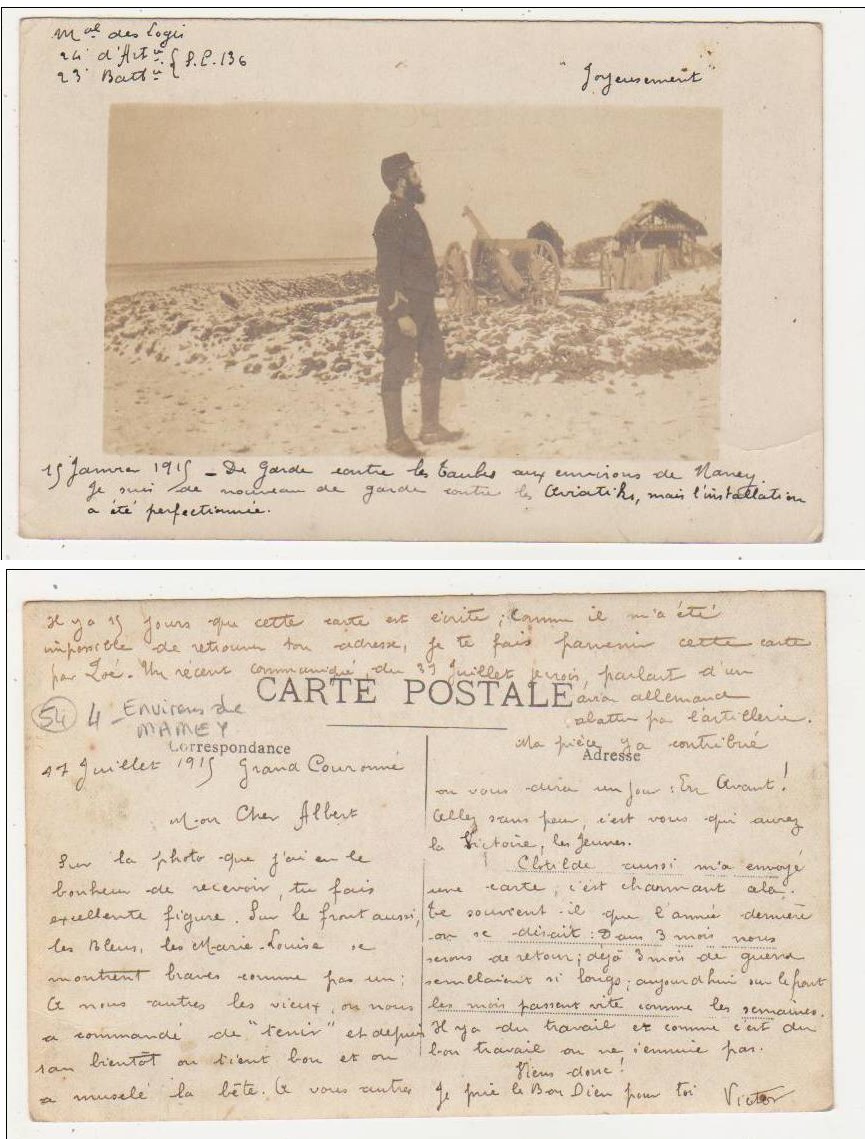 Mal des Logis
24e d'Artie
23e Battie } S.P. 136
"Joyeusement"
15 Janvier 1915 - De Garde contre les Taubes aux environs de Nancy.
Je suis de nouveau de garde contre les Aviatiks, mais l'installation
a été perfectionnée.
Il y a 15 jours que cette carte est écrite ; comme il m'a été
impossible de retrouver ton adresse, je te fais parvenir cette carte
par Zoé. Un récent communiqué, du 31 Juillet je crois, parlant d'un
avion allemand
abattu par l'artillerie.
Ma pièce y a contribué
CARTE POSTALE
54 4 - Environs de
MAMEY
Correspondance
Adresse
17 Juillet 1915 Grand Couronné
Mon Cher Albert
Sur la photo que j'ai eu le
bonheur de recevoir, tu fais
excellente figure. Sur le front aussi,
les Bleus, les Marie-Louise se
montrent braves comme pas un ;
A nous autres les vieux, on nous
a commandé de "tenir" et depuis
1 an bientôt on tient bon et on
a muselé la bête. A vous autres
on vous dira un jour : En Avant !
Allez sans peur, c'est vous qui aurez
la Victoire, les Jeunes.
Clotilde aussi m'a envoyé
une carte, c'est charmant cela.
Te souvient-il que l'année dernière
on se disait : Dans 3 mois nous
serons de retour ; déjà 3 mois de guerre
semblaient si longs ; aujourd'hui sur le front
les mois passent vite comme les semaines.
Il y a du travail et comme c'est du
bon travail on ne s'ennuie pas.
Viens donc !
Je prie le Bon Dieu pour toi Victor